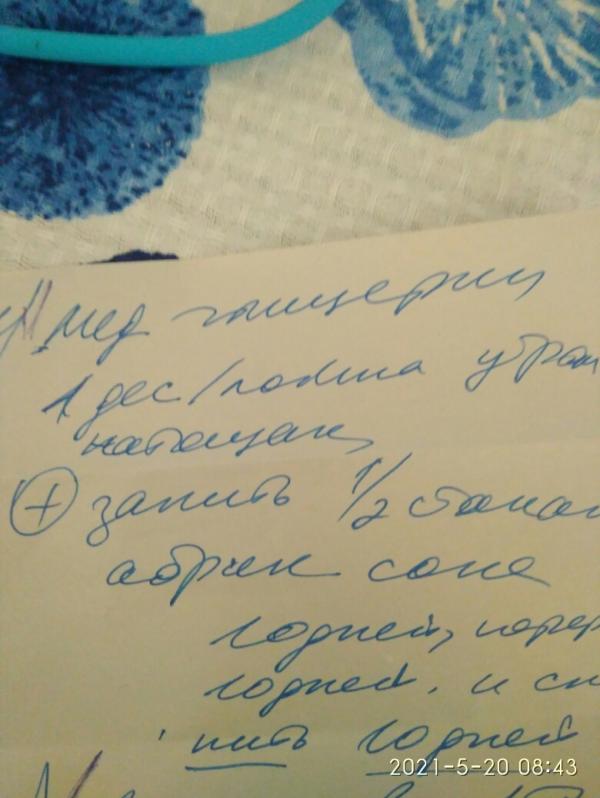 мед глицерин
1 дес/ложка утром
натощак
+ запить 1/2 стакан
абрик сока
10 дней, перер
10 дней. и сн
пить 10 дней
2021-5-20 08:43